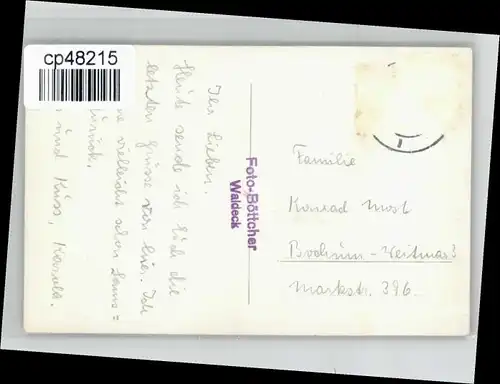 cp48215
Ihr Lieben.
Heute sende ich Euch die
letzten Grüsse von hier. Ich
vielleicht schon Sams=
zurück.
und Kuss,
Foto-Böttcher
Waldeck
Familie
Konrad Most
Bochum-Weitmar 3
Markstr. 396.